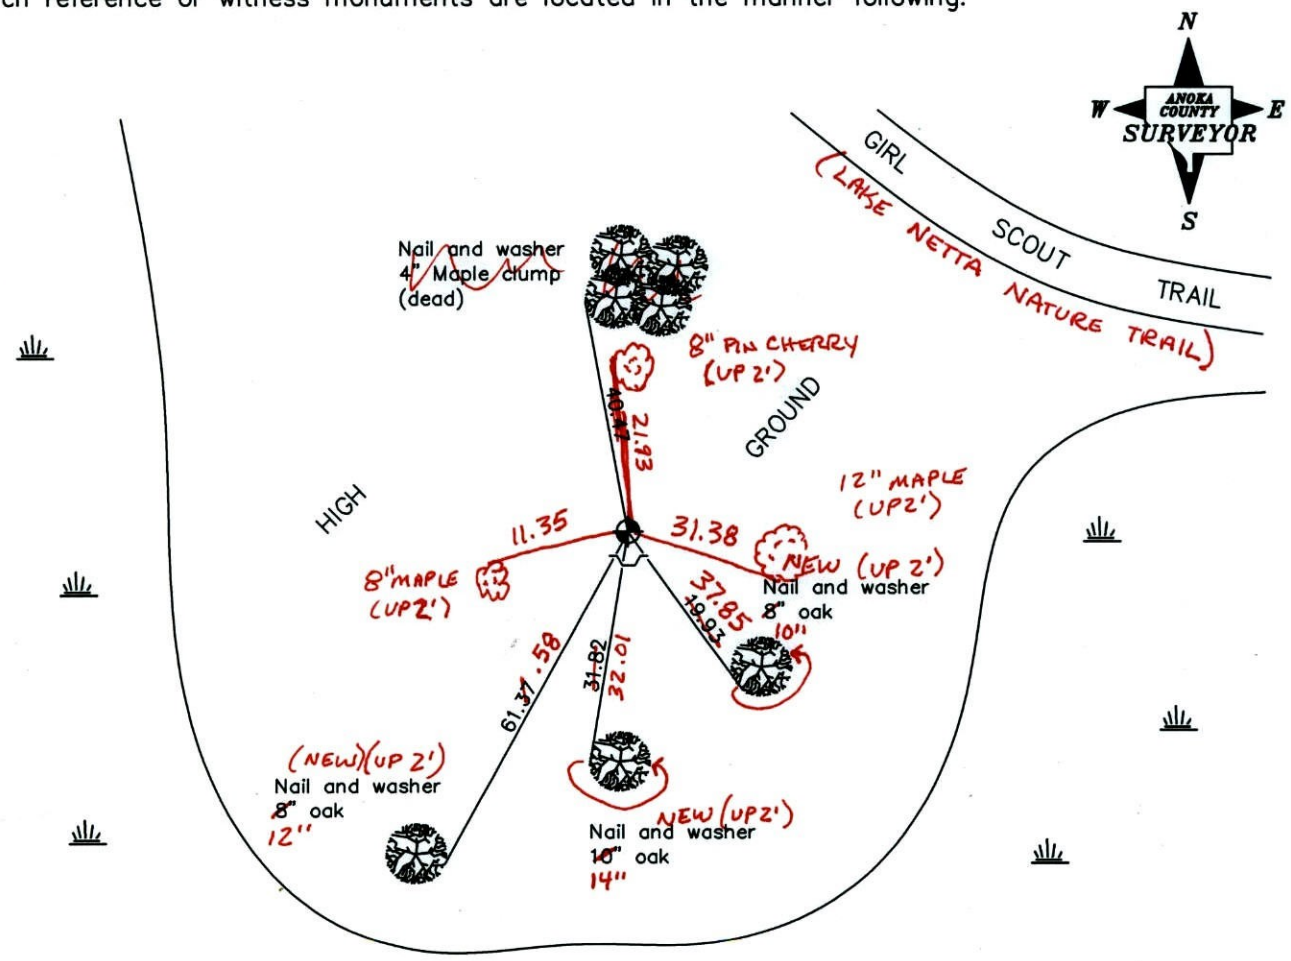 ch reference or witness monuments are located in the manner following:
N
W
ANOKA
COUNTY
SURVEYOR
E
S
GIRL
SCOUT
TRAIL
(LAKE NETTA NATURE TRAIL)
Nail and washer
4" Maple clump
(dead)
8" PIN CHERRY
(UP 2')
40.47
21.93
GROUND
HIGH
12" MAPLE
(UP2')
11.35
31.38
8" MAPLE
(UP2')
NEW (UP 2')
Nail and washer
8" oak
10"
37.85
19.93
61.37
.58
31.82
32.01
(NEW)(UP 2')
Nail and washer
8" oak
12"
NEW (UP2')
Nail and washer
10" oak
14"